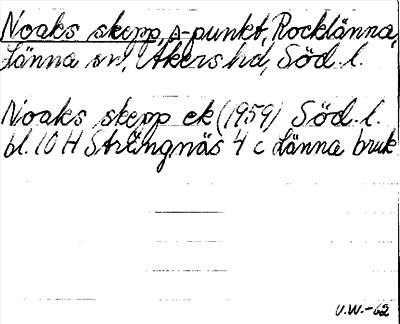 Noaks skepp, s-punkt, Rocklänna,
Länna sn, Åkers hd, Söd. l.
Noaks skepp ek (1959) Söd. l.
bl. 10 H Strängnäs 4 c Länna bruk
V.W.-62